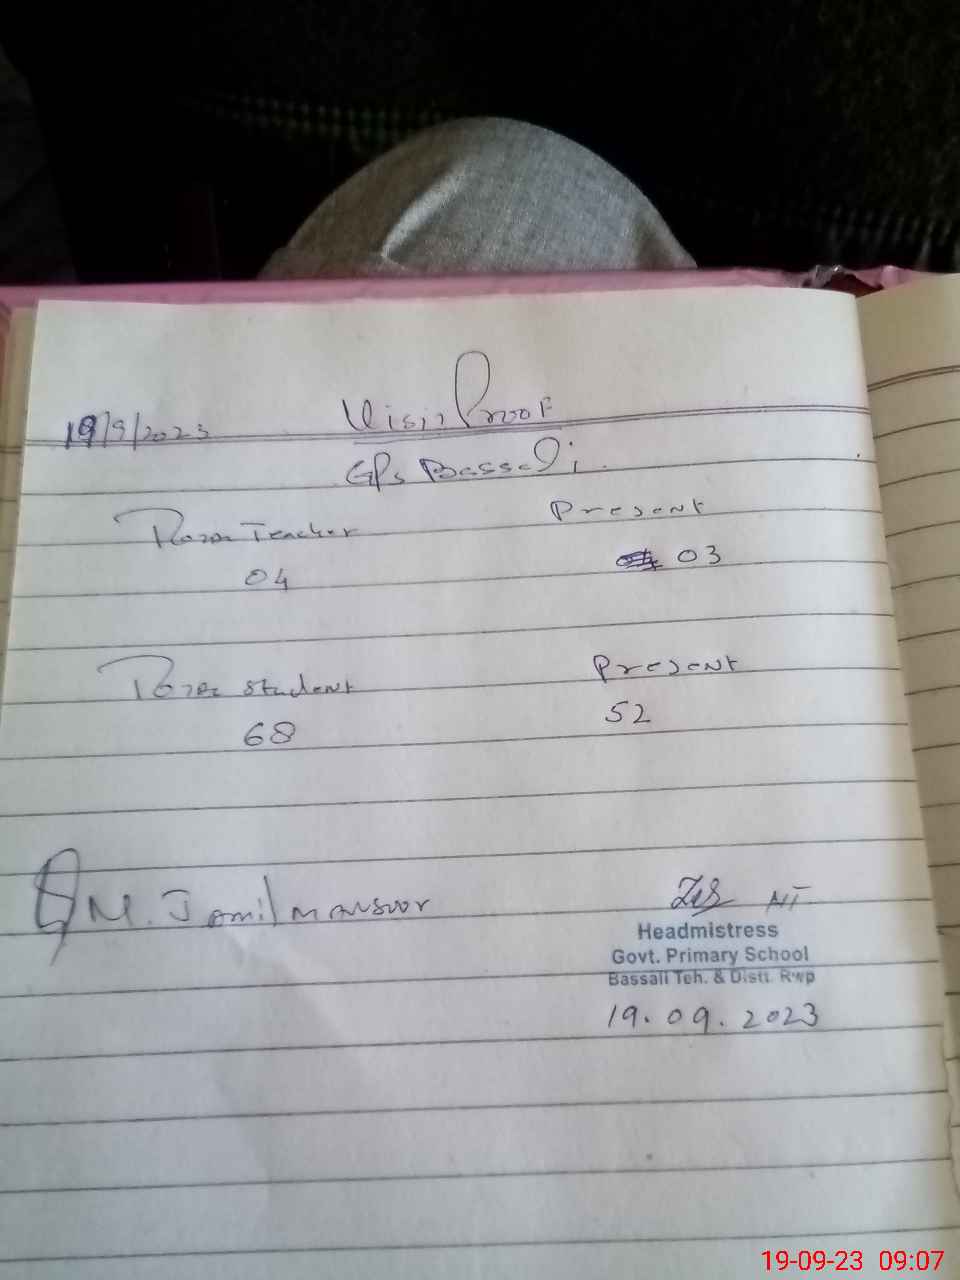 19/9/2023 Visit Proof
GPs Bassali
Total Teacher Present
04 03
Total Student Present
68 52
M. Jamil Mansoor
Headmistress
Govt. Primary School
Bassali Teh. & Distt. Rwp
19.09.2023
19-09-23 09:07